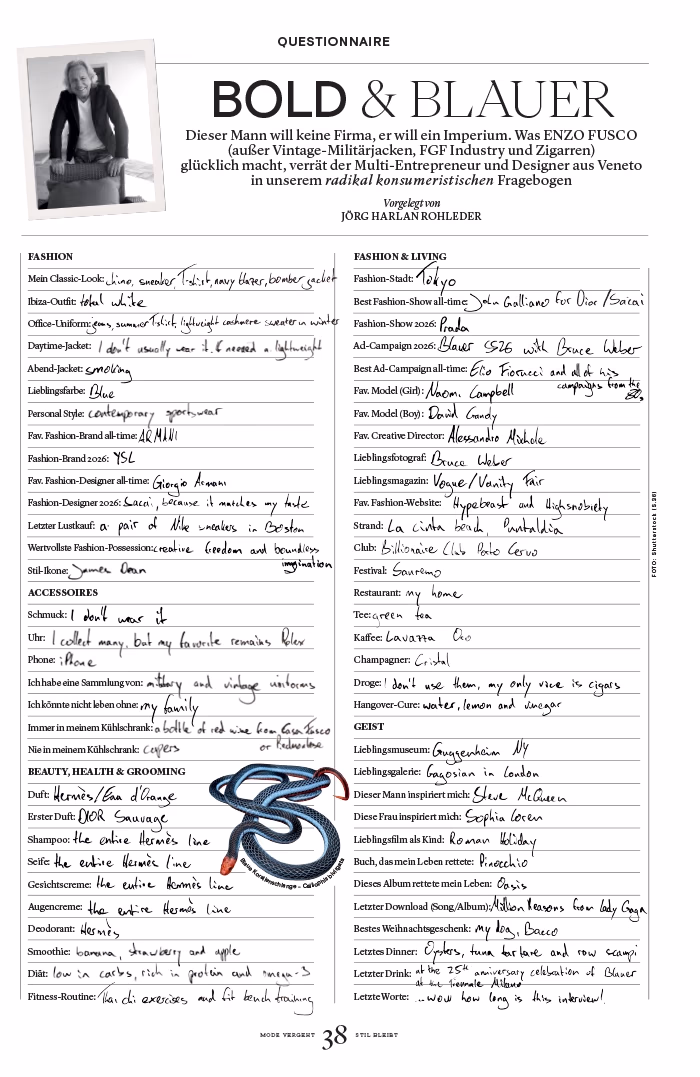 QUESTIONNAIRE
BOLD & BLAUER
Dieser Mann will keine Firma, er will ein Imperium. Was ENZO FUSCO
(außer Vintage-Militärjacken, FGF Industry und Zigarren)
glücklich macht, verrät der Multi-Entrepreneur und Designer aus Veneto
in unserem radikal konsumeristischen Fragebogen
Vorgelegt von
JÖRG HARLAN ROHLEDER
FASHION
Mein Classic-Look: chino, sneaker, T-shirt, navy blazer, bomber jacket
Ibiza-Outfit: total white
Office-Uniform: jeans, summer T-shirt, lightweight cashmere sweater in winter
Daytime-Jacket: I don't usually wear it. If needed a lightweight
Abend-Jacket: smoking
Lieblingsfarbe: Blue
Personal Style: contemporary sportswear
Fav. Fashion-Brand all-time: ARMANI
Fashion-Brand 2026: YSL
Fav. Fashion-Designer all-time: Giorgio Armani
Fashion-Designer 2026: Sacai, because it matches my taste
Letzter Lustkauf: a pair of Nike sneakers in Boston
Wertvollste Fashion-Possession: creative freedom and boundless
imagination
Stil-Ikone: James Dean
ACCESSOIRES
Schmuck: I don't wear it
Uhr: I collect many, but my favorite remains Rolex
Phone: iPhone
Ich habe eine Sammlung von: military and vintage uniforms
Ich könnte nicht leben ohne: my family
Immer in meinem Kühlschrank: a bottle of red wine from Casa Fusco
or Piedmontese
Nie in meinem Kühlschrank: capers
BEAUTY, HEALTH & GROOMING
Duft: Hermès/Eau d'Orange
Erster Duft: DIOR Sauvage
Shampoo: the entire Hermès line
Seife: the entire Hermès line
Gesichtscreme: the entire Hermès line
Augencreme: the entire Hermès line
Deodorant: Hermès
Smoothie: banana, strawberry and apple
Diät: low in carbs, rich in protein and omega-3
Fitness-Routine: Thai chi exercises and fit bench training
Blaue Korallenschlange – Calliophis bivirgata
FASHION & LIVING
Fashion-Stadt: Tokyo
Best Fashion-Show all-time: John Galliano for Dior / Sacai
Fashion-Show 2026: Prada
Ad-Campaign 2026: Blauer SS26 with Bruce Weber
Best Ad-Campaign all-time: Elio Fiorucci and all of his
campaigns from the
80s
Fav. Model (Girl): Naomi Campbell
Fav. Model (Boy): David Gandy
Fav. Creative Director: Alessandro Michele
Lieblingsfotograf: Bruce Weber
Lieblingsmagazin: Vogue/Vanity Fair
Fav. Fashion-Website: Hypebeast and Highsnobiety
Strand: La cinta beach, Puntaldia
Club: Billionaire Club Porto Cervo
Festival: Sanremo
Restaurant: my home
Tee: green tea
Kaffee: Lavazza Oro
Champagner: Cristal
Droge: I don't use them, my only vice is cigars
Hangover-Cure: water, lemon and vinegar
GEIST
Lieblingsmuseum: Guggenheim NY
Lieblingsgalerie: Gagosian in London
Dieser Mann inspiriert mich: Steve McQueen
Diese Frau inspiriert mich: Sophia Loren
Lieblingsfilm als Kind: Roman Holiday
Buch, das mein Leben rettete: Pinocchio
Dieses Album rettete mein Leben: Oasis
Letzter Download (Song/Album): Million Reasons from Lady Gaga
Bestes Weihnachtsgeschenk: my dog, Bacco
Letztes Dinner: Oysters, tuna tartare and raw scampi
Letzter Drink: at the 25th anniversary celebration of Blauer
at the Triennale Milano
Letzte Worte: ...wow how long is this interview!
FOTO: Shutterstock (S.36)
MODE VERGEHT 38 STIL BLEIBT